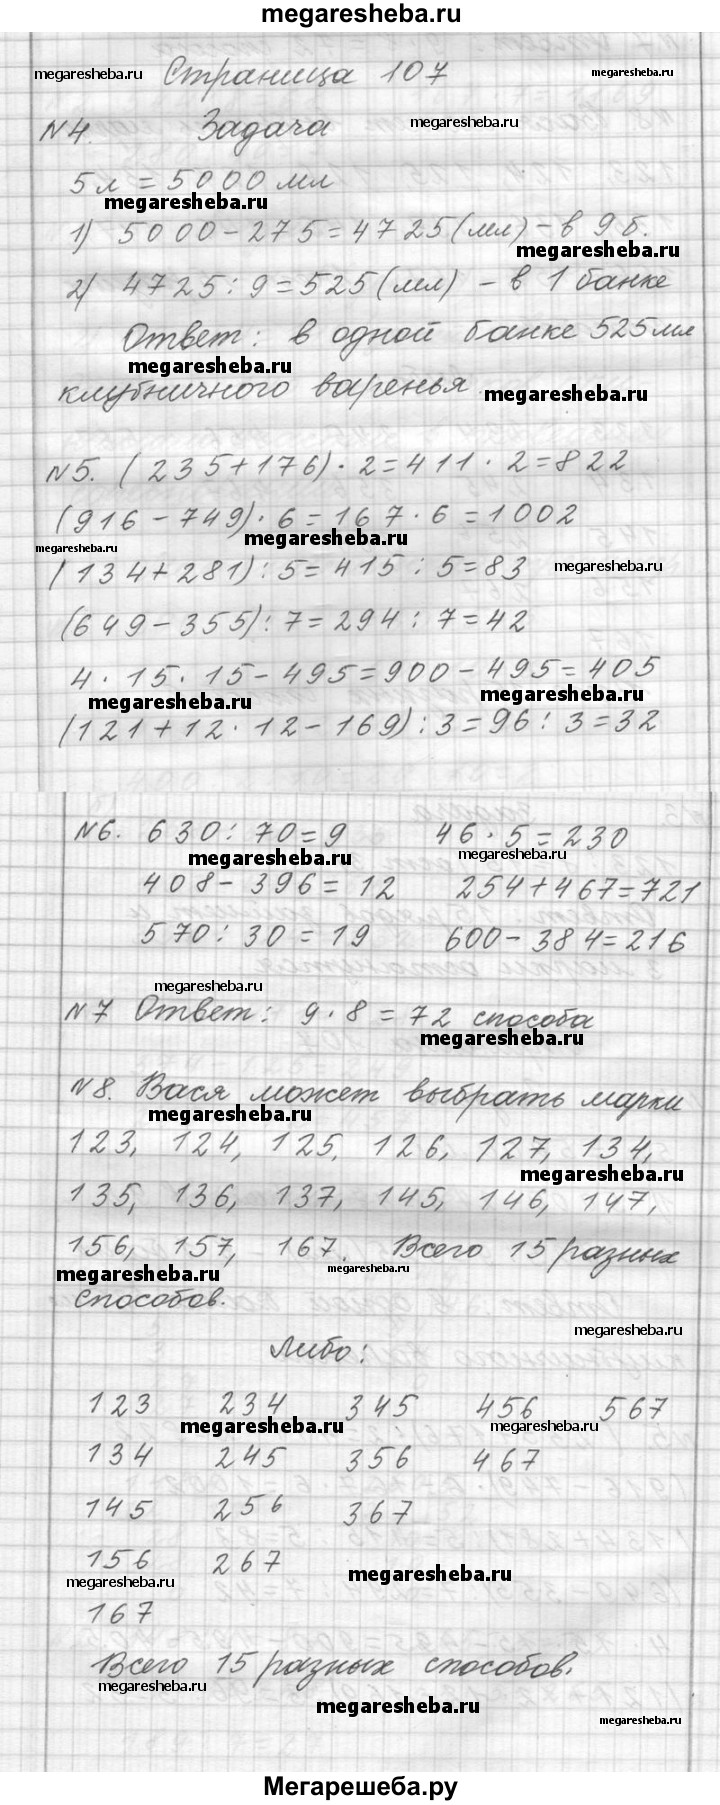 megaresheba.ru
Страница 107
megaresheba.ru megaresheba.ru
№4. Задача megaresheba.ru
5 л = 5000 мл
megaresheba.ru
1) 5000 - 275 = 4725 (мл) - в 9 б.
megaresheba.ru
2) 4725 : 9 = 525 (мл) - в 1 банке
Ответ: в одной банке 525 мл
megaresheba.ru
клубничного варенья megaresheba.ru
№5. (235 + 176) · 2 = 411 · 2 = 822
(916 - 749) · 6 = 167 · 6 = 1002
megaresheba.ru
megaresheba.ru
(134 + 281) : 5 = 415 : 5 = 83 megaresheba.ru
(649 - 355) : 7 = 294 : 7 = 42
4 · 15 · 15 - 495 = 900 - 495 = 405
megaresheba.ru megaresheba.ru
(121 + 12 · 12 - 169) : 3 = 96 : 3 = 32
№6. 630 : 70 = 9 46 · 5 = 230
megaresheba.ru megaresheba.ru
408 - 396 = 12 254 + 467 = 721
570 : 30 = 19 600 - 384 = 216
megaresheba.ru
№7 Ответ: 9 · 8 = 72 способа
megaresheba.ru
№8. Вася может выбрать марки
megaresheba.ru
123, 124, 125, 126, 127, 134,
megaresheba.ru
135, 136, 137, 145, 146, 147,
156, 157, 167. Всего 15 разных
megaresheba.ru megaresheba.ru
способов.
megaresheba.ru
Либо:
123 234 345 456 567
megaresheba.ru megaresheba.ru
134 245 356 467
145 256 367
156 267
megaresheba.ru megaresheba.ru
167
Всего 15 разных способов.
megaresheba.ru
megaresheba.ru
megaresheba.ru
Мегарешеба.ру